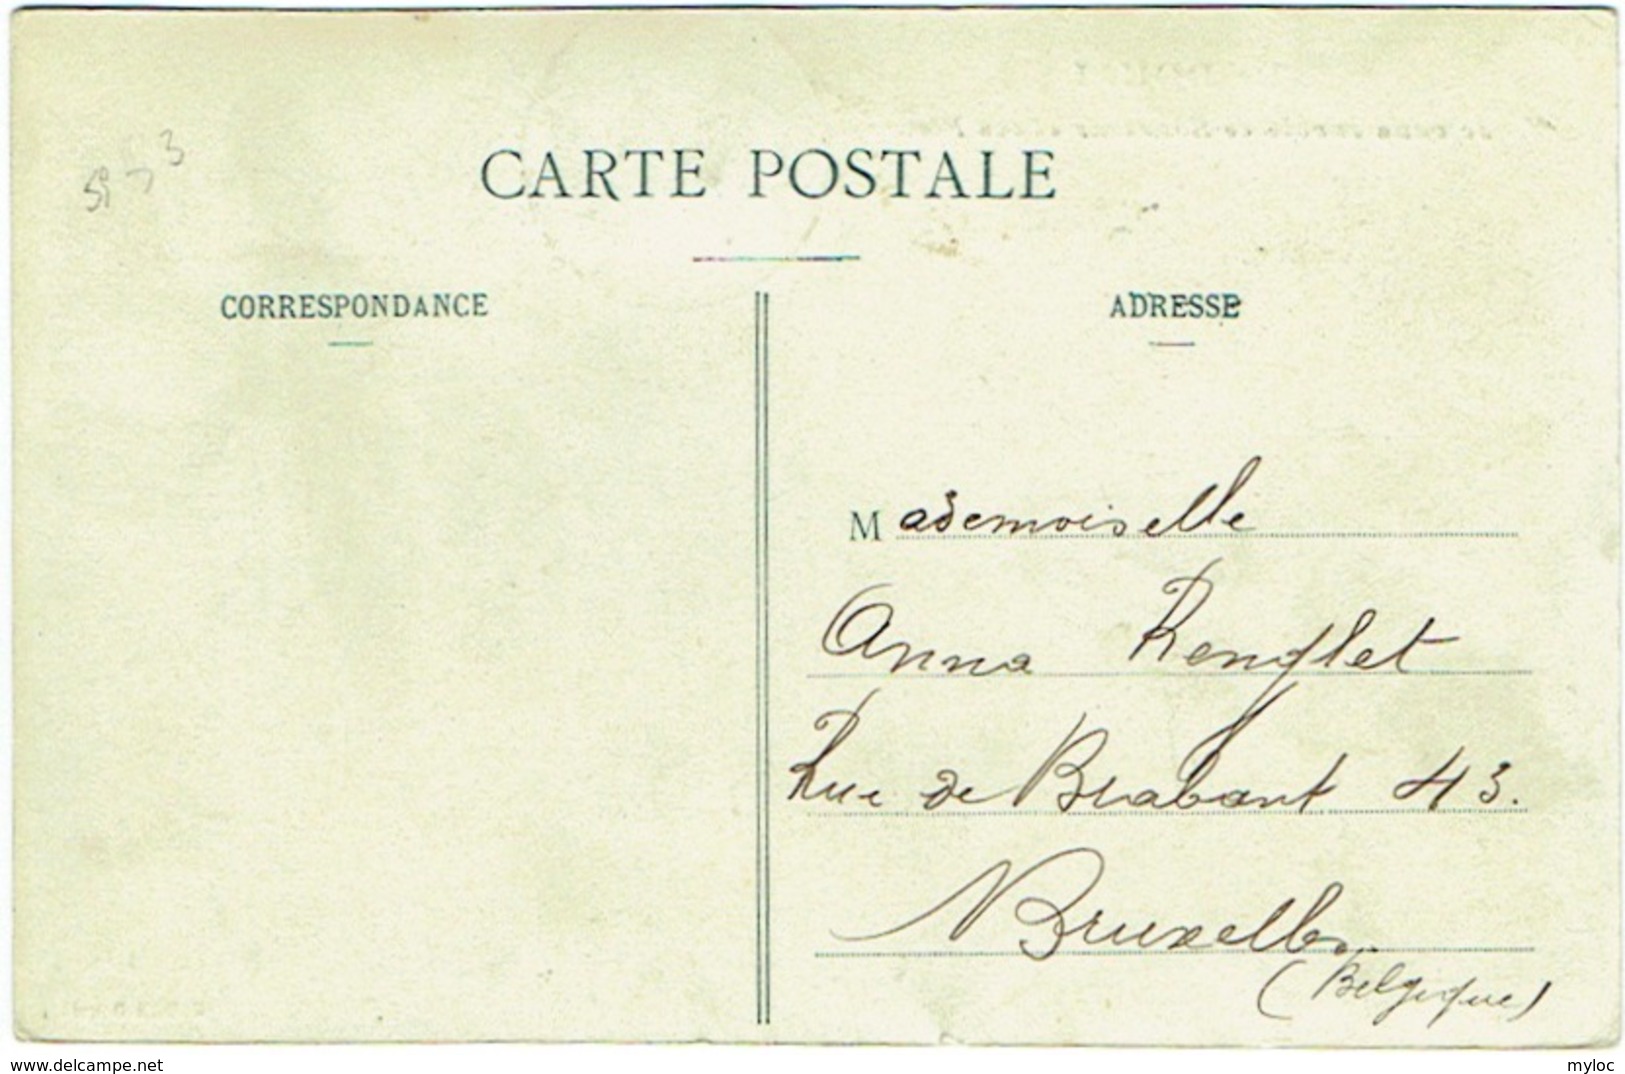 CARTE POSTALE
CORRESPONDANCE
ADRESSE
Mademoiselle
Anna Renglet
Rue de Brabant 43.
Bruxelles
(Belgique)
www.delcampe.net
myloc